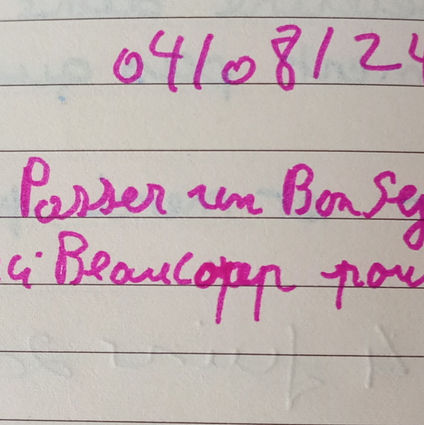 04/08/24
Passer un Bon Sej
ci Beaucoup pou